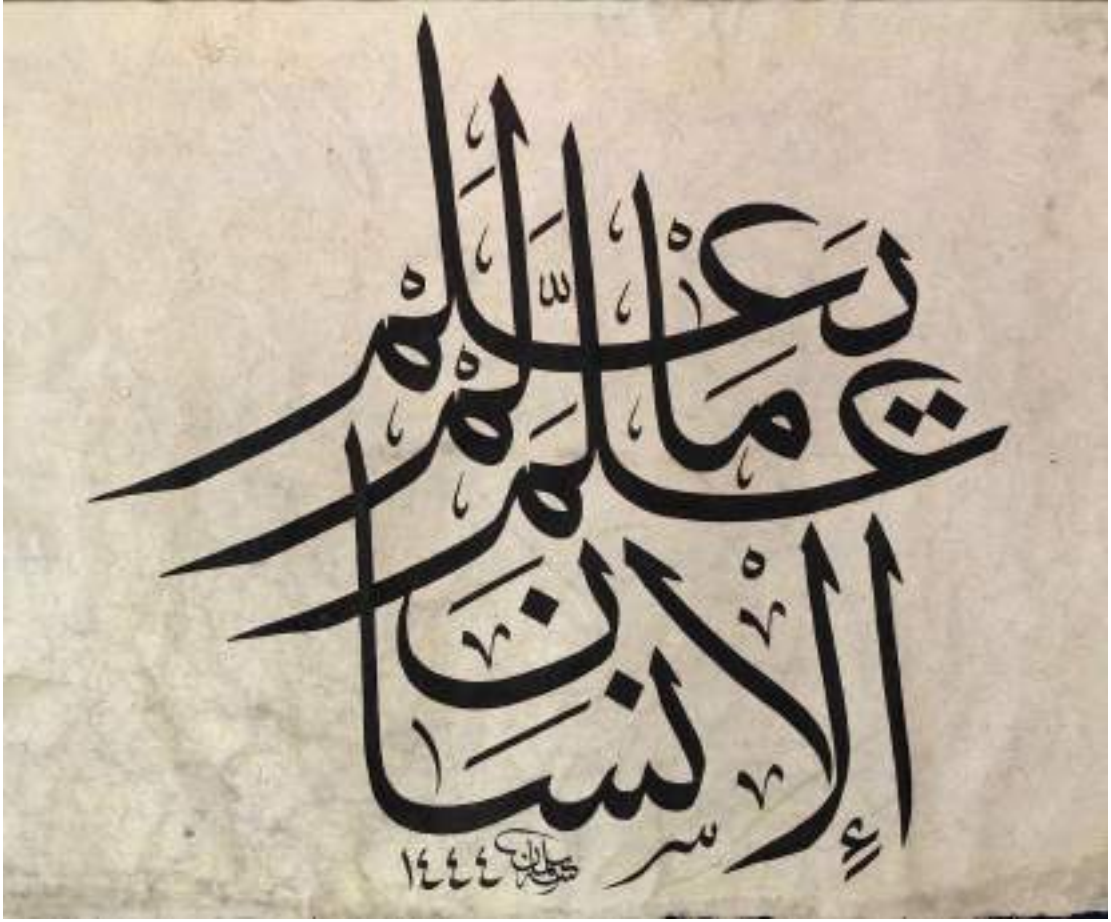 عَلَّمَ الْإِنْسَانَ مَا لَمْ يَعْلَمْ
سلمان ١٤٤٤